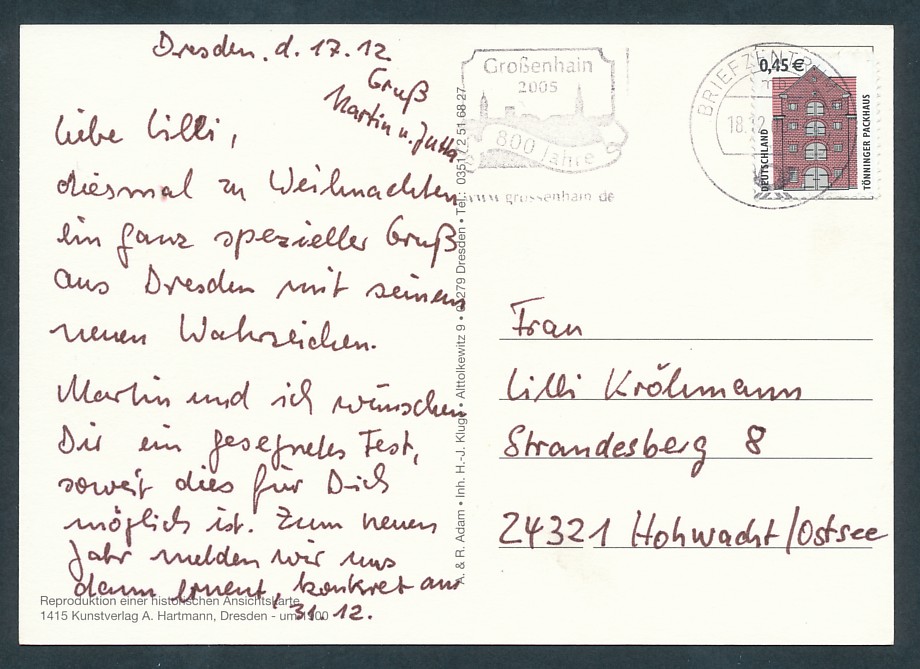 Dresden. d. 17.12
Gruß
Martin u. Jutta
Liebe Lilli,
diesmal zu Weihnachten
ein ganz spezieller Gruß
aus Dresden mit seinem
neuen Wahrzeichen.
Martin und ich wünschen
Dir ein gesegnetes Fest,
soweit dies für Dich
möglich ist. Zum neuen
Jahr melden wir uns
dann erneut, konkret am
31.12.
Reproduktion einer historischen Ansichtskarte
1415 Kunstverlag A. Hartmann, Dresden - um 1900
A. & R. Adam • Inh. H.-J. Kluge • Alttolkewitz 9 • 01279 Dresden • Tel.: 0351 / 2 51 68 27
Großenhain
2005
800 Jahre
www.grossenhain.de
BRIEFZENTRUM
18.12
0,45 €
DEUTSCHLAND
TÖNNINGER PACKHAUS
Frau
Lilli Kröhmann
Strandesberg 8
24321 Hohwacht/Ostsee